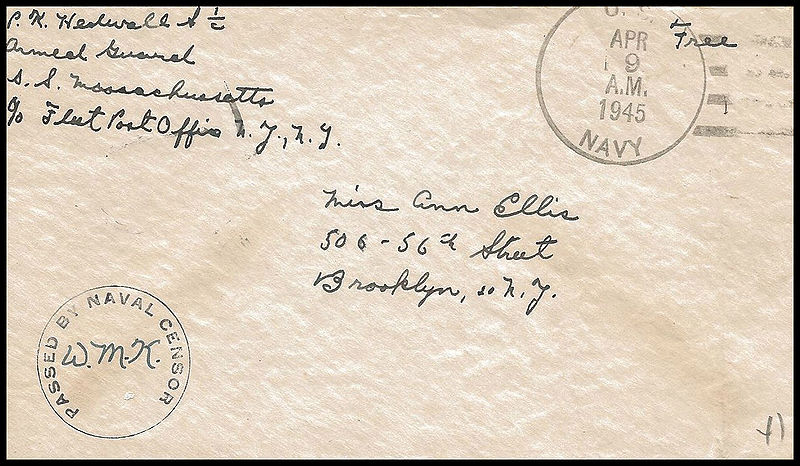 P. K. Hedwall S ½
Armed Guard
S. S. Massachusetts
c/o Fleet Post Office N.Y., N.Y.
Free
U. S.
APR
9
A.M.
1945
NAVY
Miss Ann Ellis
506 - 56th Street
Brooklyn, 20 N.Y.
PASSED BY NAVAL CENSOR
W.M.K.